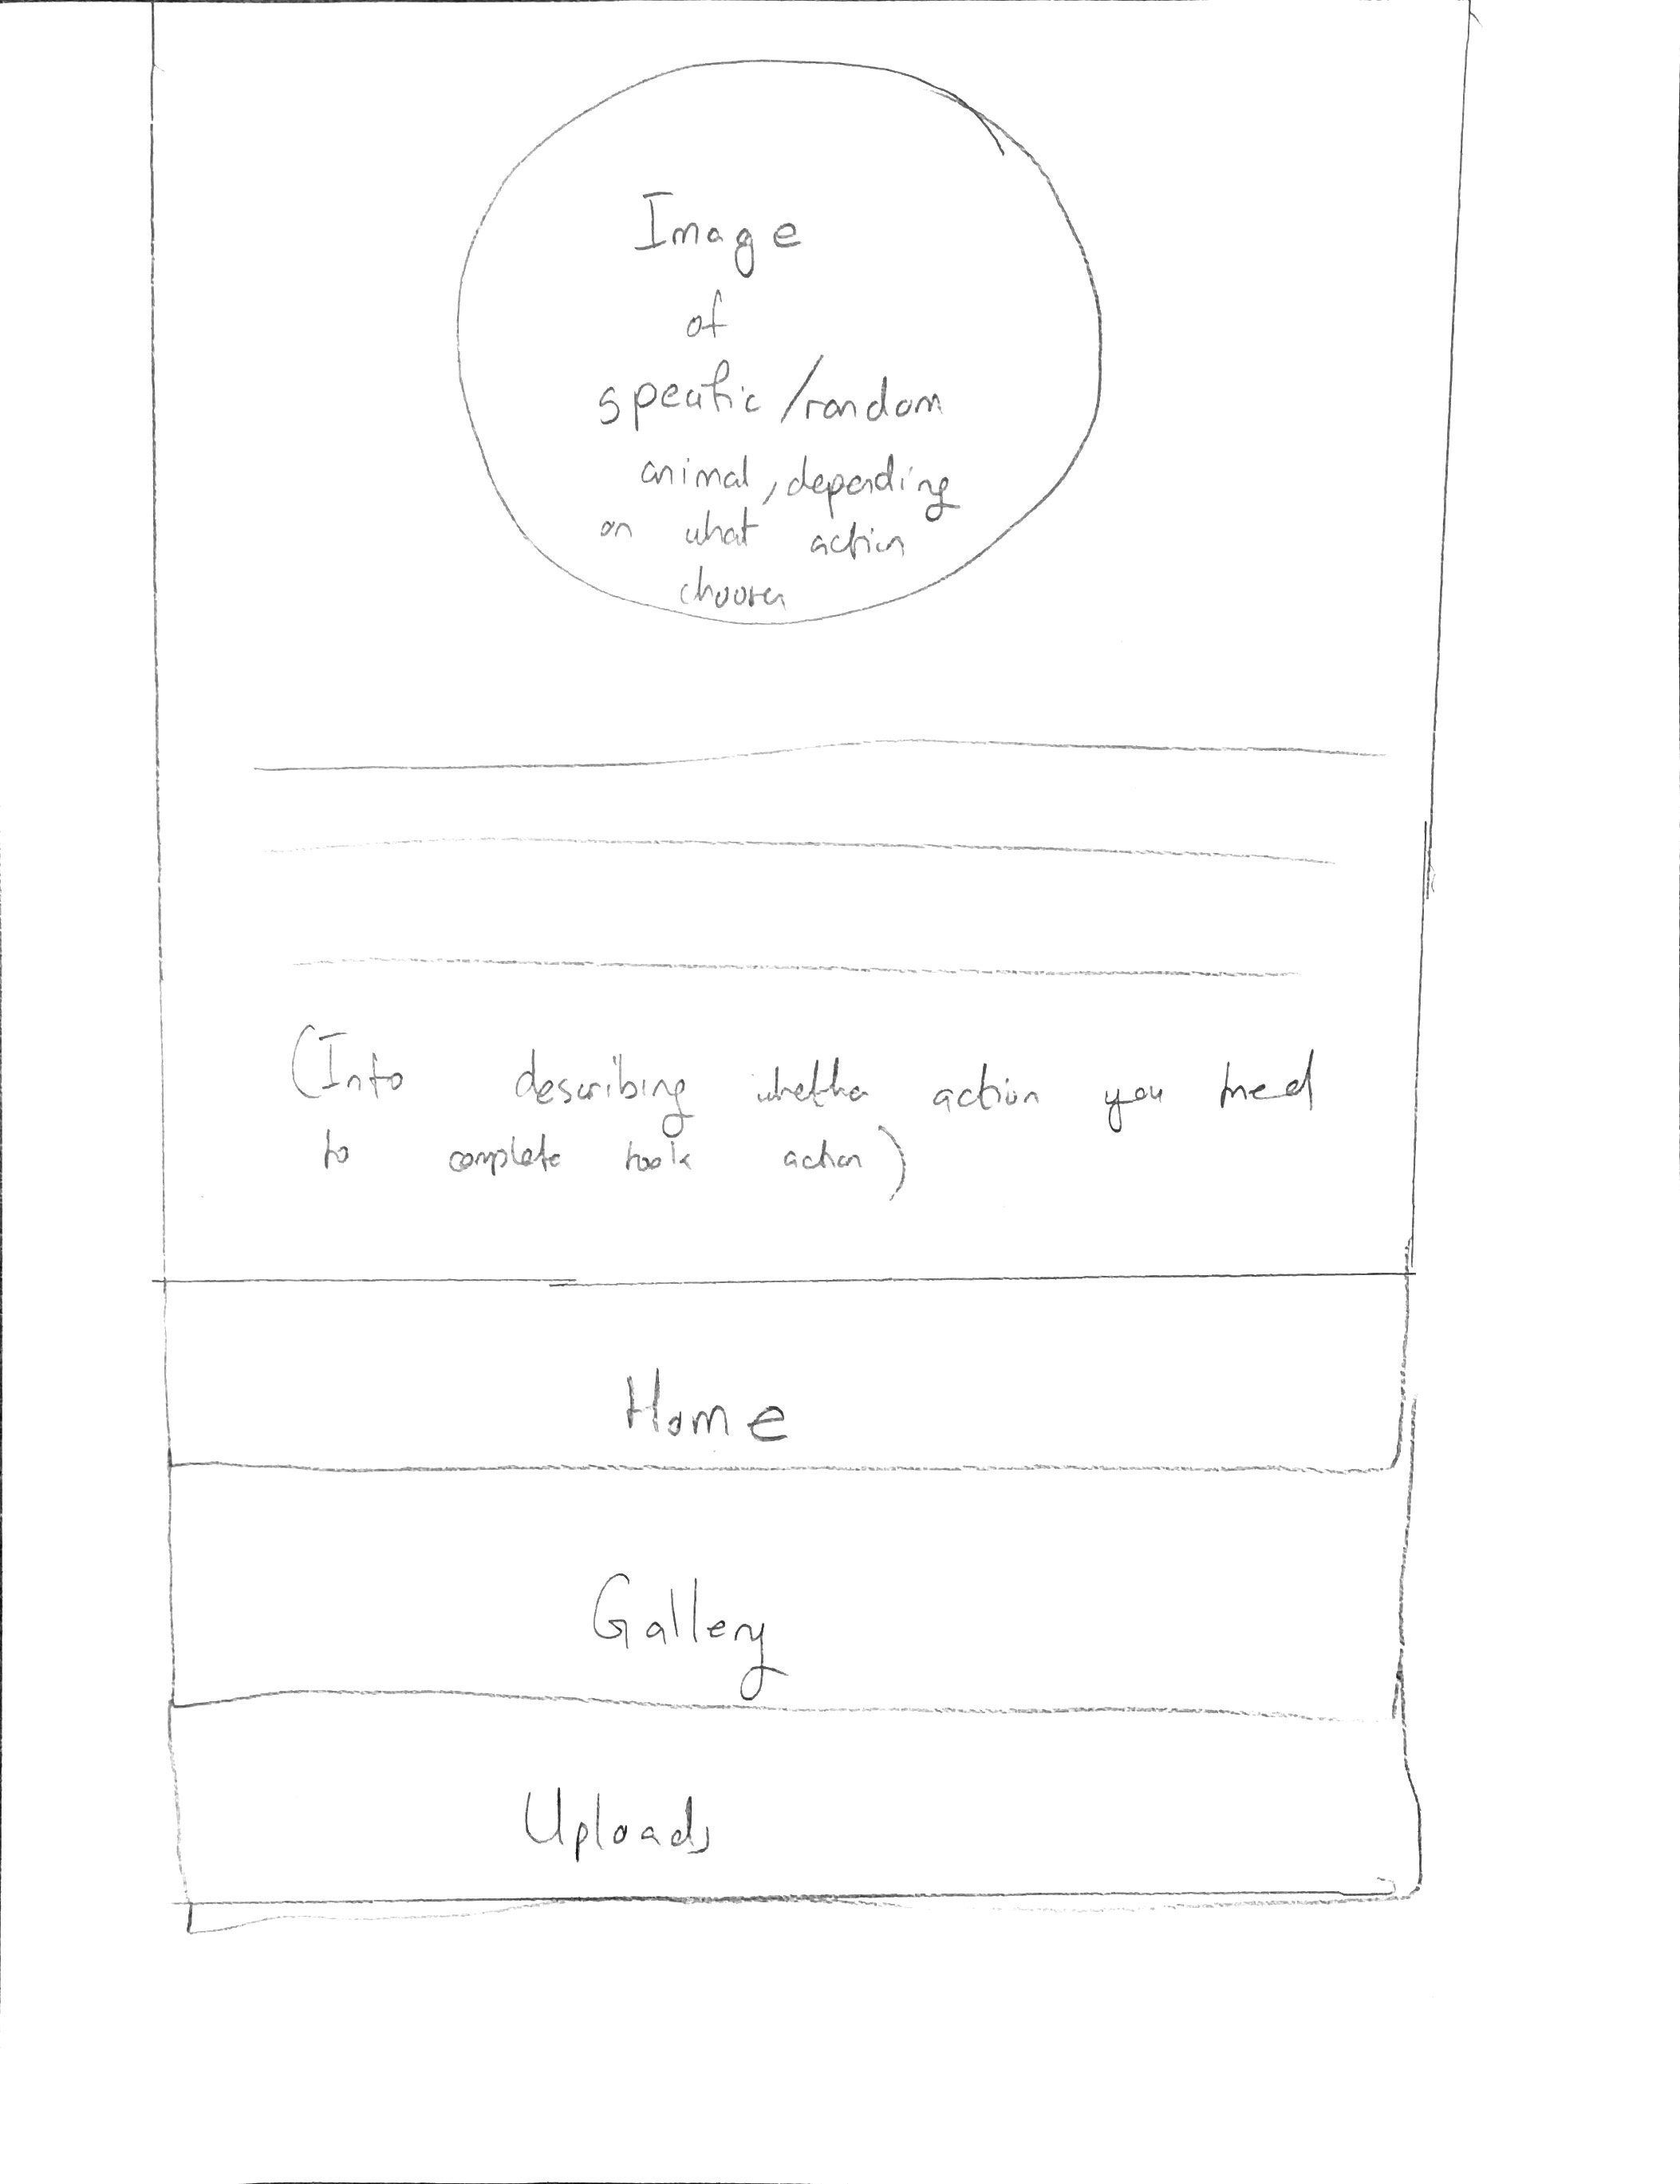 Image
of
specific/random
animal, depending
on what action
chosen
(Info describing whether action you tried
to complete took action)
Home
Gallery
Uploads